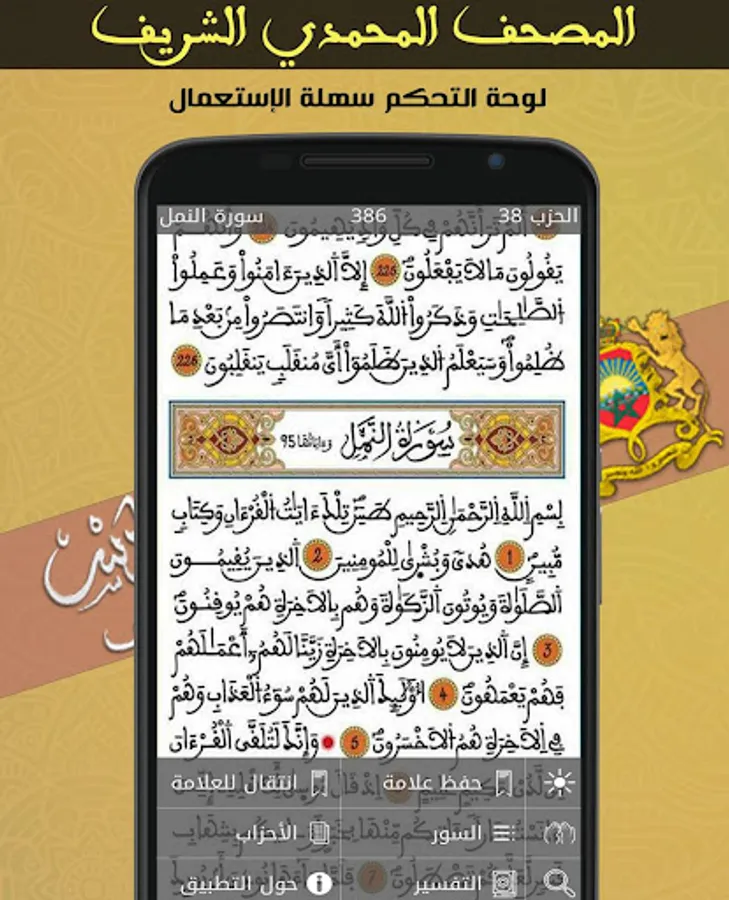 المصحف المحمدي الشريف
لوحة التحكم سهلة الإستعمال
الحزب 38 386 سورة النمل
أَلَمْ تَرَ أَنَّهُمْ فِي كُلِّ وَادٍ يَهِيمُونَ وَأَنَّهُمْ
يَقُولُونَ مَا لَا يَفْعَلُونَ 225 إِلَّا الَّذِينَ ءَامَنُوا وَعَمِلُوا
الصَّالِحَاتِ وَذَكَرُوا اللَّهَ كَثِيرًا وَانتَصَرُوا مِن بَعْدِ مَا
ظُلِمُوا وَسَيَعْلَمُ الَّذِينَ ظَلَمُوا أَيَّ مُنقَلَبٍ يَنقَلِبُونَ 226
سُورَةُ النَّمْلِ وءاياتها 95
بِسْمِ اللَّهِ الرَّحْمَٰنِ الرَّحِيمِ طَسِ تِلْكَ ءَايَاتُ الْقُرْءَانِ وَكِتَابٍ
مُّبِينٍ 1 هُدًى وَبُشْرَىٰ لِلْمُومِنِينَ 2 الَّذِينَ يُقِيمُونَ
الصَّلَوٰةَ وَيُوتُونَ الزَّكَوٰةَ وَهُم بِالَاخِرَةِ هُمْ يُوقِنُونَ
3 إِنَّ الَّذِينَ لَا يُومِنُونَ بِالَاخِرَةِ زَيَّنَّا لَهُمُ أَعْمَٰلَهُمْ
فَهُمْ يَعْمَهُونَ 4 أُوْلَٰئِكَ الَّذِينَ لَهُمْ سُوءُ الْعَذَابِ وَهُمْ
فِي الَاخِرَةِ هُمُ الَاخْسَرُونَ 5 وَإِنَّكَ لَتُلَقَّى الْقُرْءَانَ
حفظ علامة انتقال للعلامة
السور الأحزاب
التفسير حول التطبيق